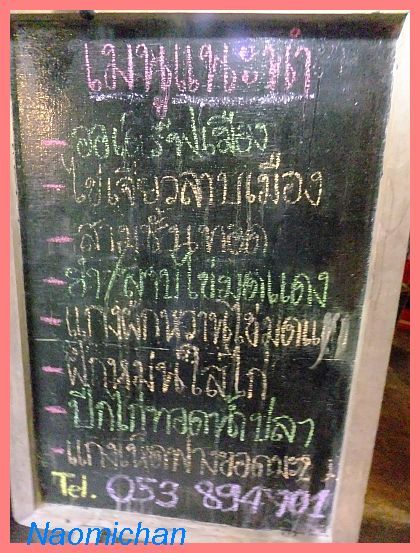 เมนูแนะนำ
- ออเดิร์ฟเมือง
- ไข่เจียวลาบเมือง
- สามชั้นทอด
- ยำ/ลาบไข่มดแดง
- แกงผักหวานไข่มดแดง
- ฟักหม่นใส่ไก่
- ปีกไก่ทอดน้ำปลา
- แกงเห็ดฟางยอดมะขาม
Tel. 053 894901
Naomichan